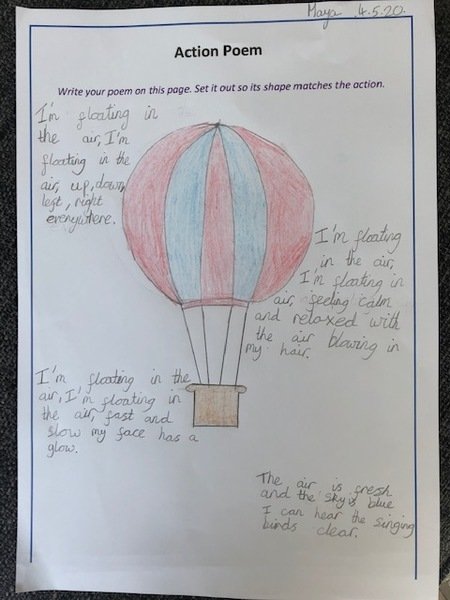 Maya 4.5.20.
Action Poem
Write your poem on this page. Set it out so its shape matches the action.
I'm floating in
the air, I'm
floating in the
air, up, down,
left, right
everywhere.
I'm floating
in the air,
I'm floating in
air, feeling calm
and relaxed with
the air blowing in
my hair.
I'm floating in the
air, I'm floating in
the air, fast and
slow my face has a
glow.
The air is fresh
and the sky is blue
I can hear the singing
birds clear.